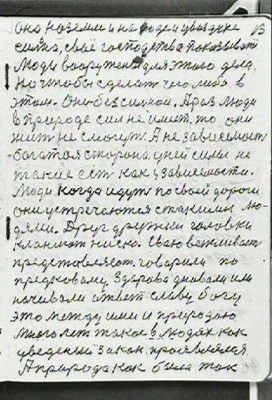 Она на земли и на воде и увоздухе 13
сила, свое господства показывает
Люди вооружены для этого дела.
Но чтобы сделать чего либо в
этом. Оно без силное. А раз люди
в природе сил не имеет то они
жить не смогут. А не зависемость
богатоя сторона у ней силы не
такие ест как у зависемости.
Люди когда идут по своей дороги
они устречаются стакими лю-
дями. Друг дружки головки
клонют ниско. Свою вежливаст
предстовляют. говорили по
предковому, здрова дновали им
начивали ответ славу богу
это между ими и природою
много лет такое в людях как
уведеный закон проявлялся.
А природа как была так